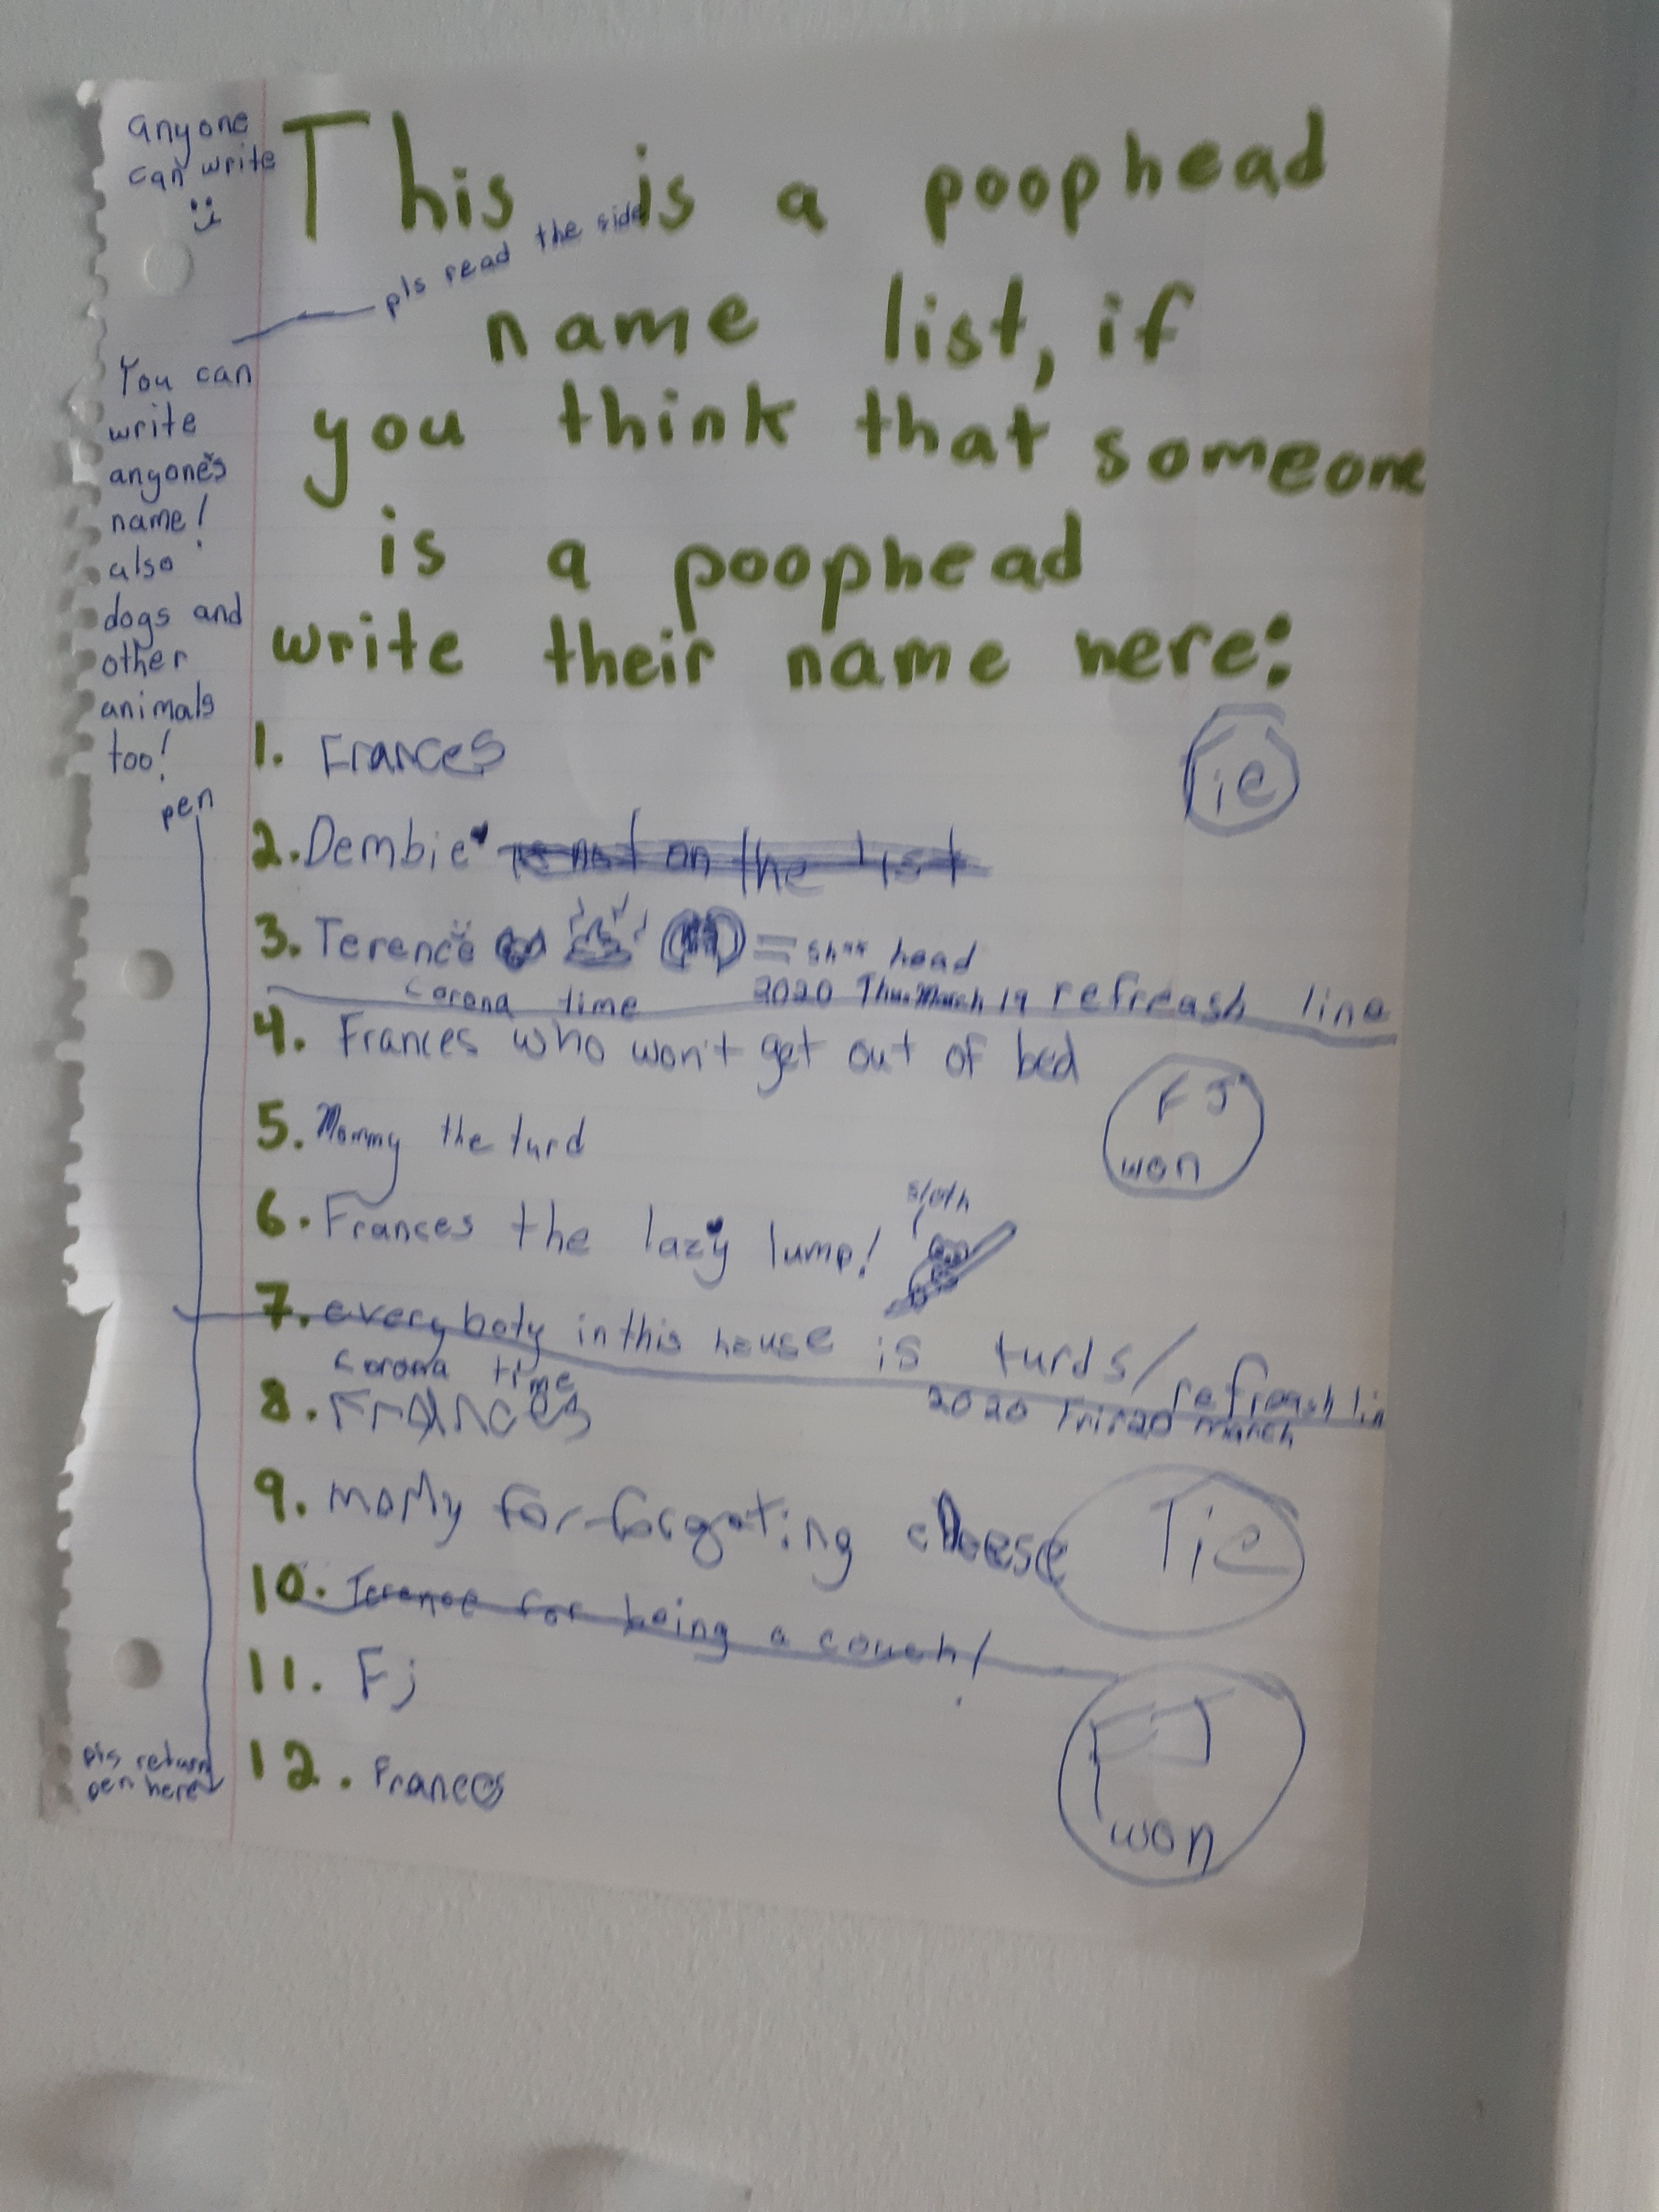 anyone
can write
This is a poophead
pls read the side
name list, if
you think that someone
is a poophead
write their name here:
You can
write
anyone's
name!
also
dogs and
other
animals
too!
pen
pls return
pen here
1. Frances
Tie
2. Dembie is not on the list
3. Terence = sh** head
corona time 2020 Thu. March 19 refreash line
4. Frances who won't get out of bed
FJ
won
5. Mommy the turd
6. Frances the lazy lump!
sloth
7. everyboty in this house is turds/
refreash lin
corona time 2020 Fri 20 march
8. FRANCES
9. momy for forgating cheese
Tie
10. Terence for being a couch!
11. Fj
12. Frances
FJ
won